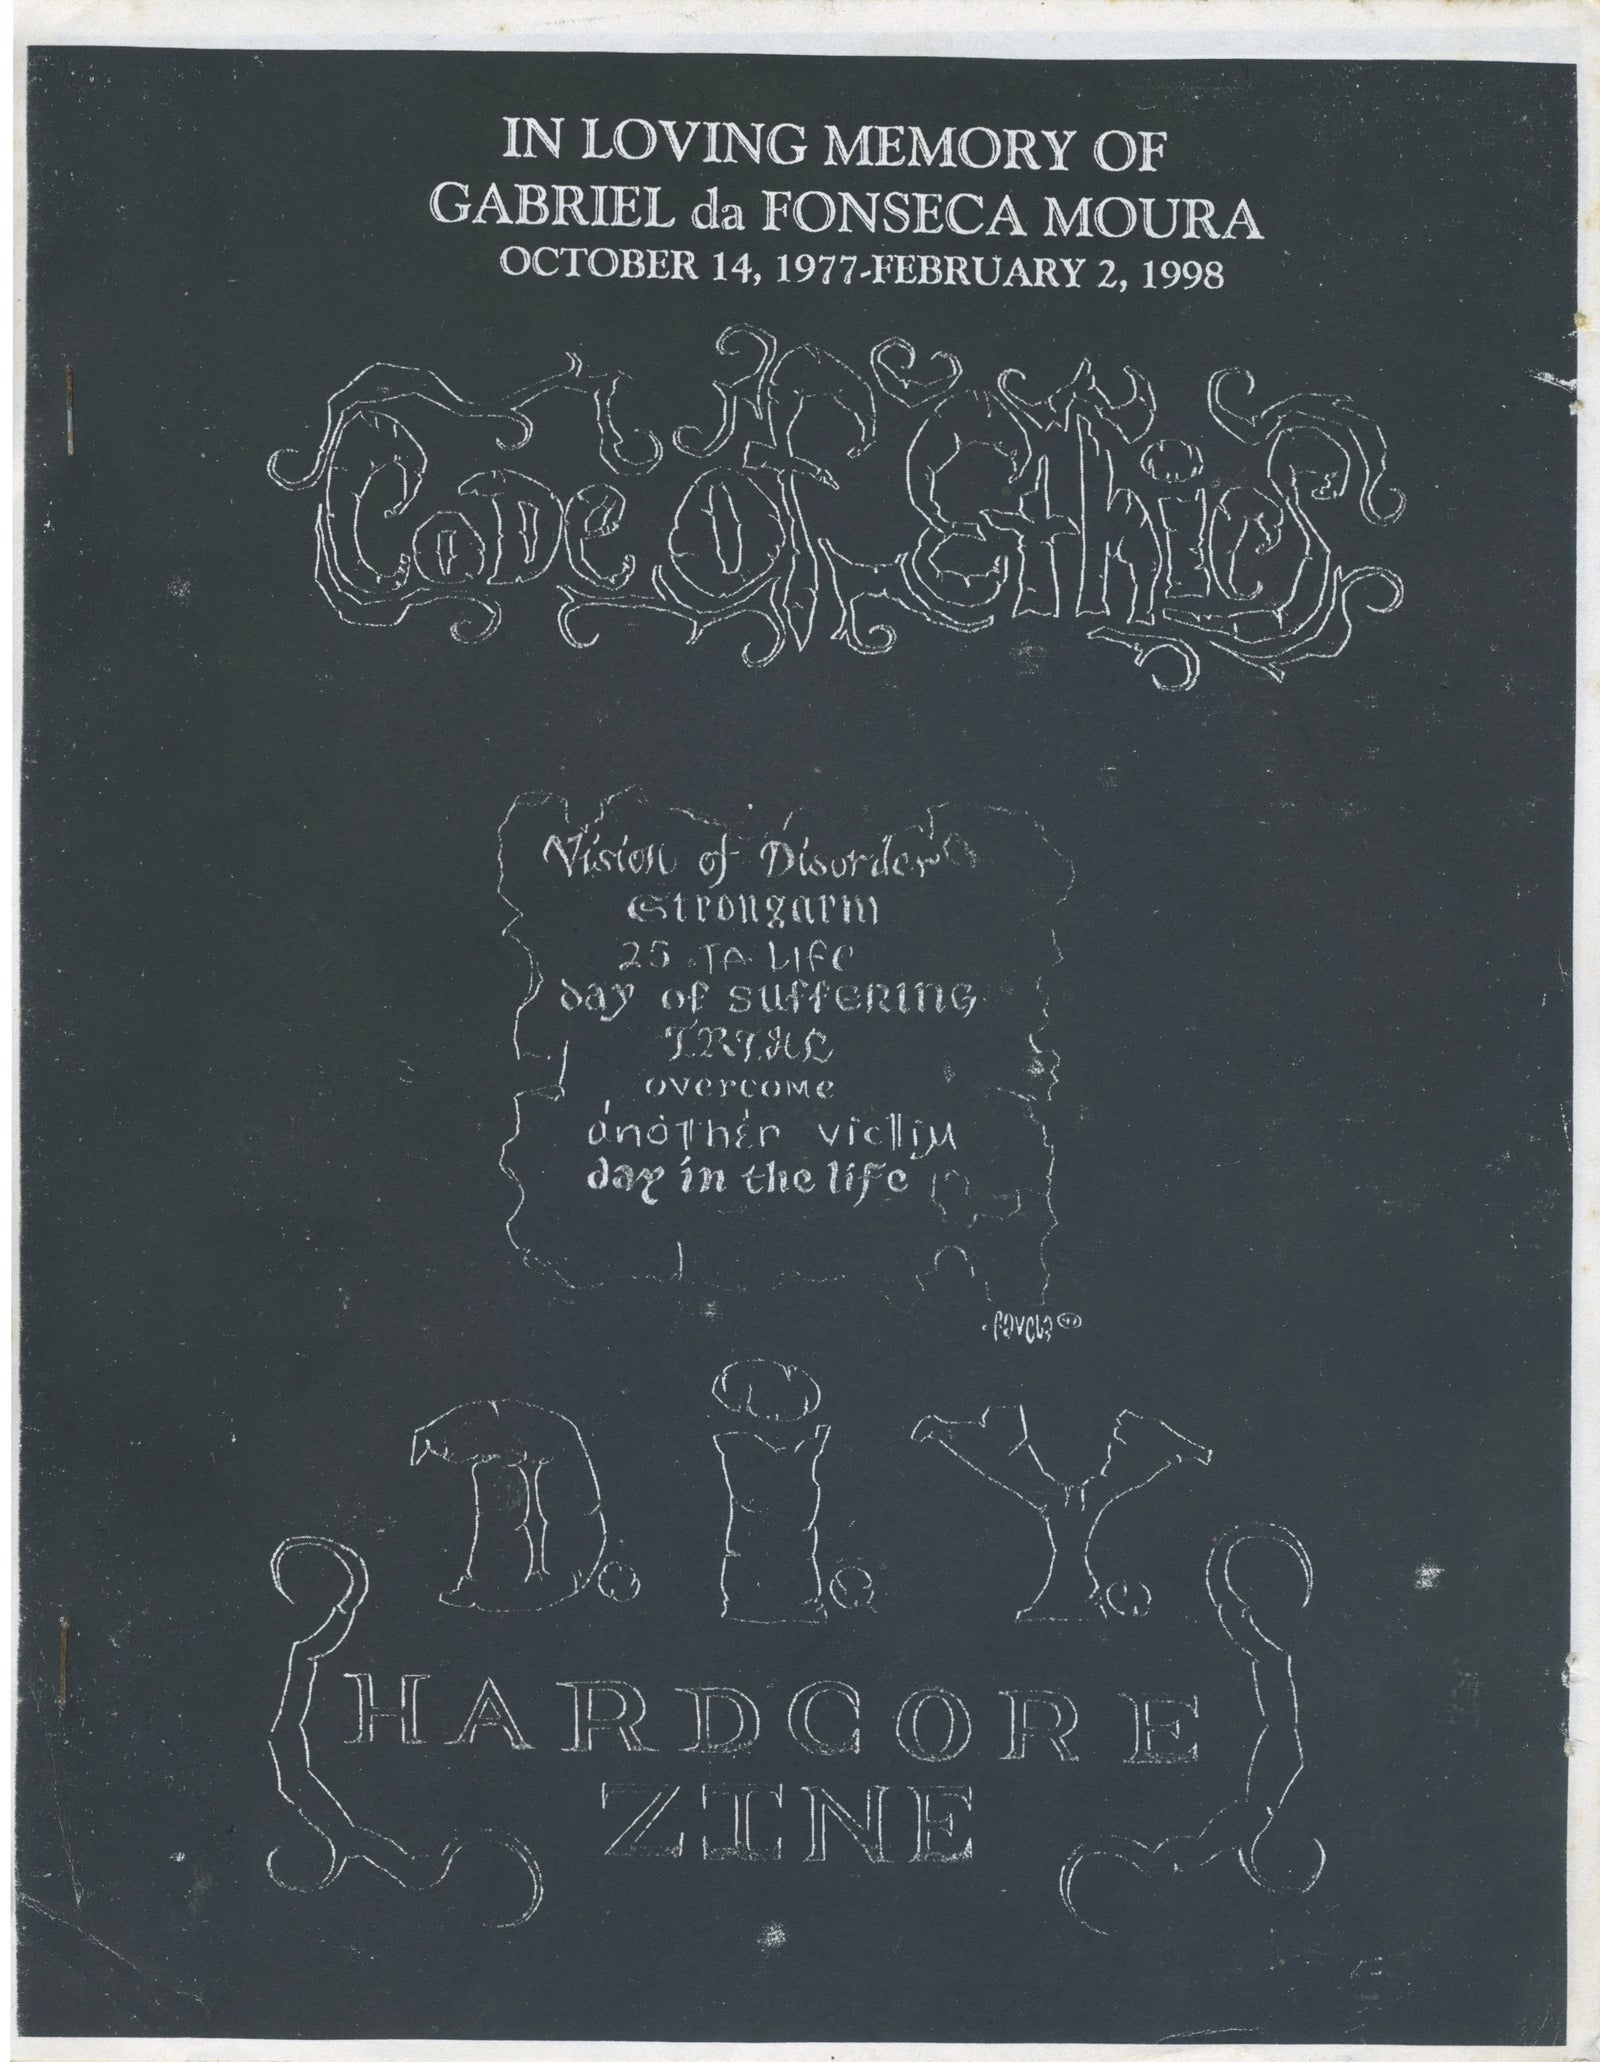 IN LOVING MEMORY OF
GABRIEL da FONSECA MOURA
OCTOBER 14, 1977-FEBRUARY 2, 1998
Code Of Ethics
Vision of Disorder
Strongarm
25 TA LIFE
day of suffering
TRIAL
overcome
another victim
day in the life
D.i.Y.
HARDCORE
ZINE